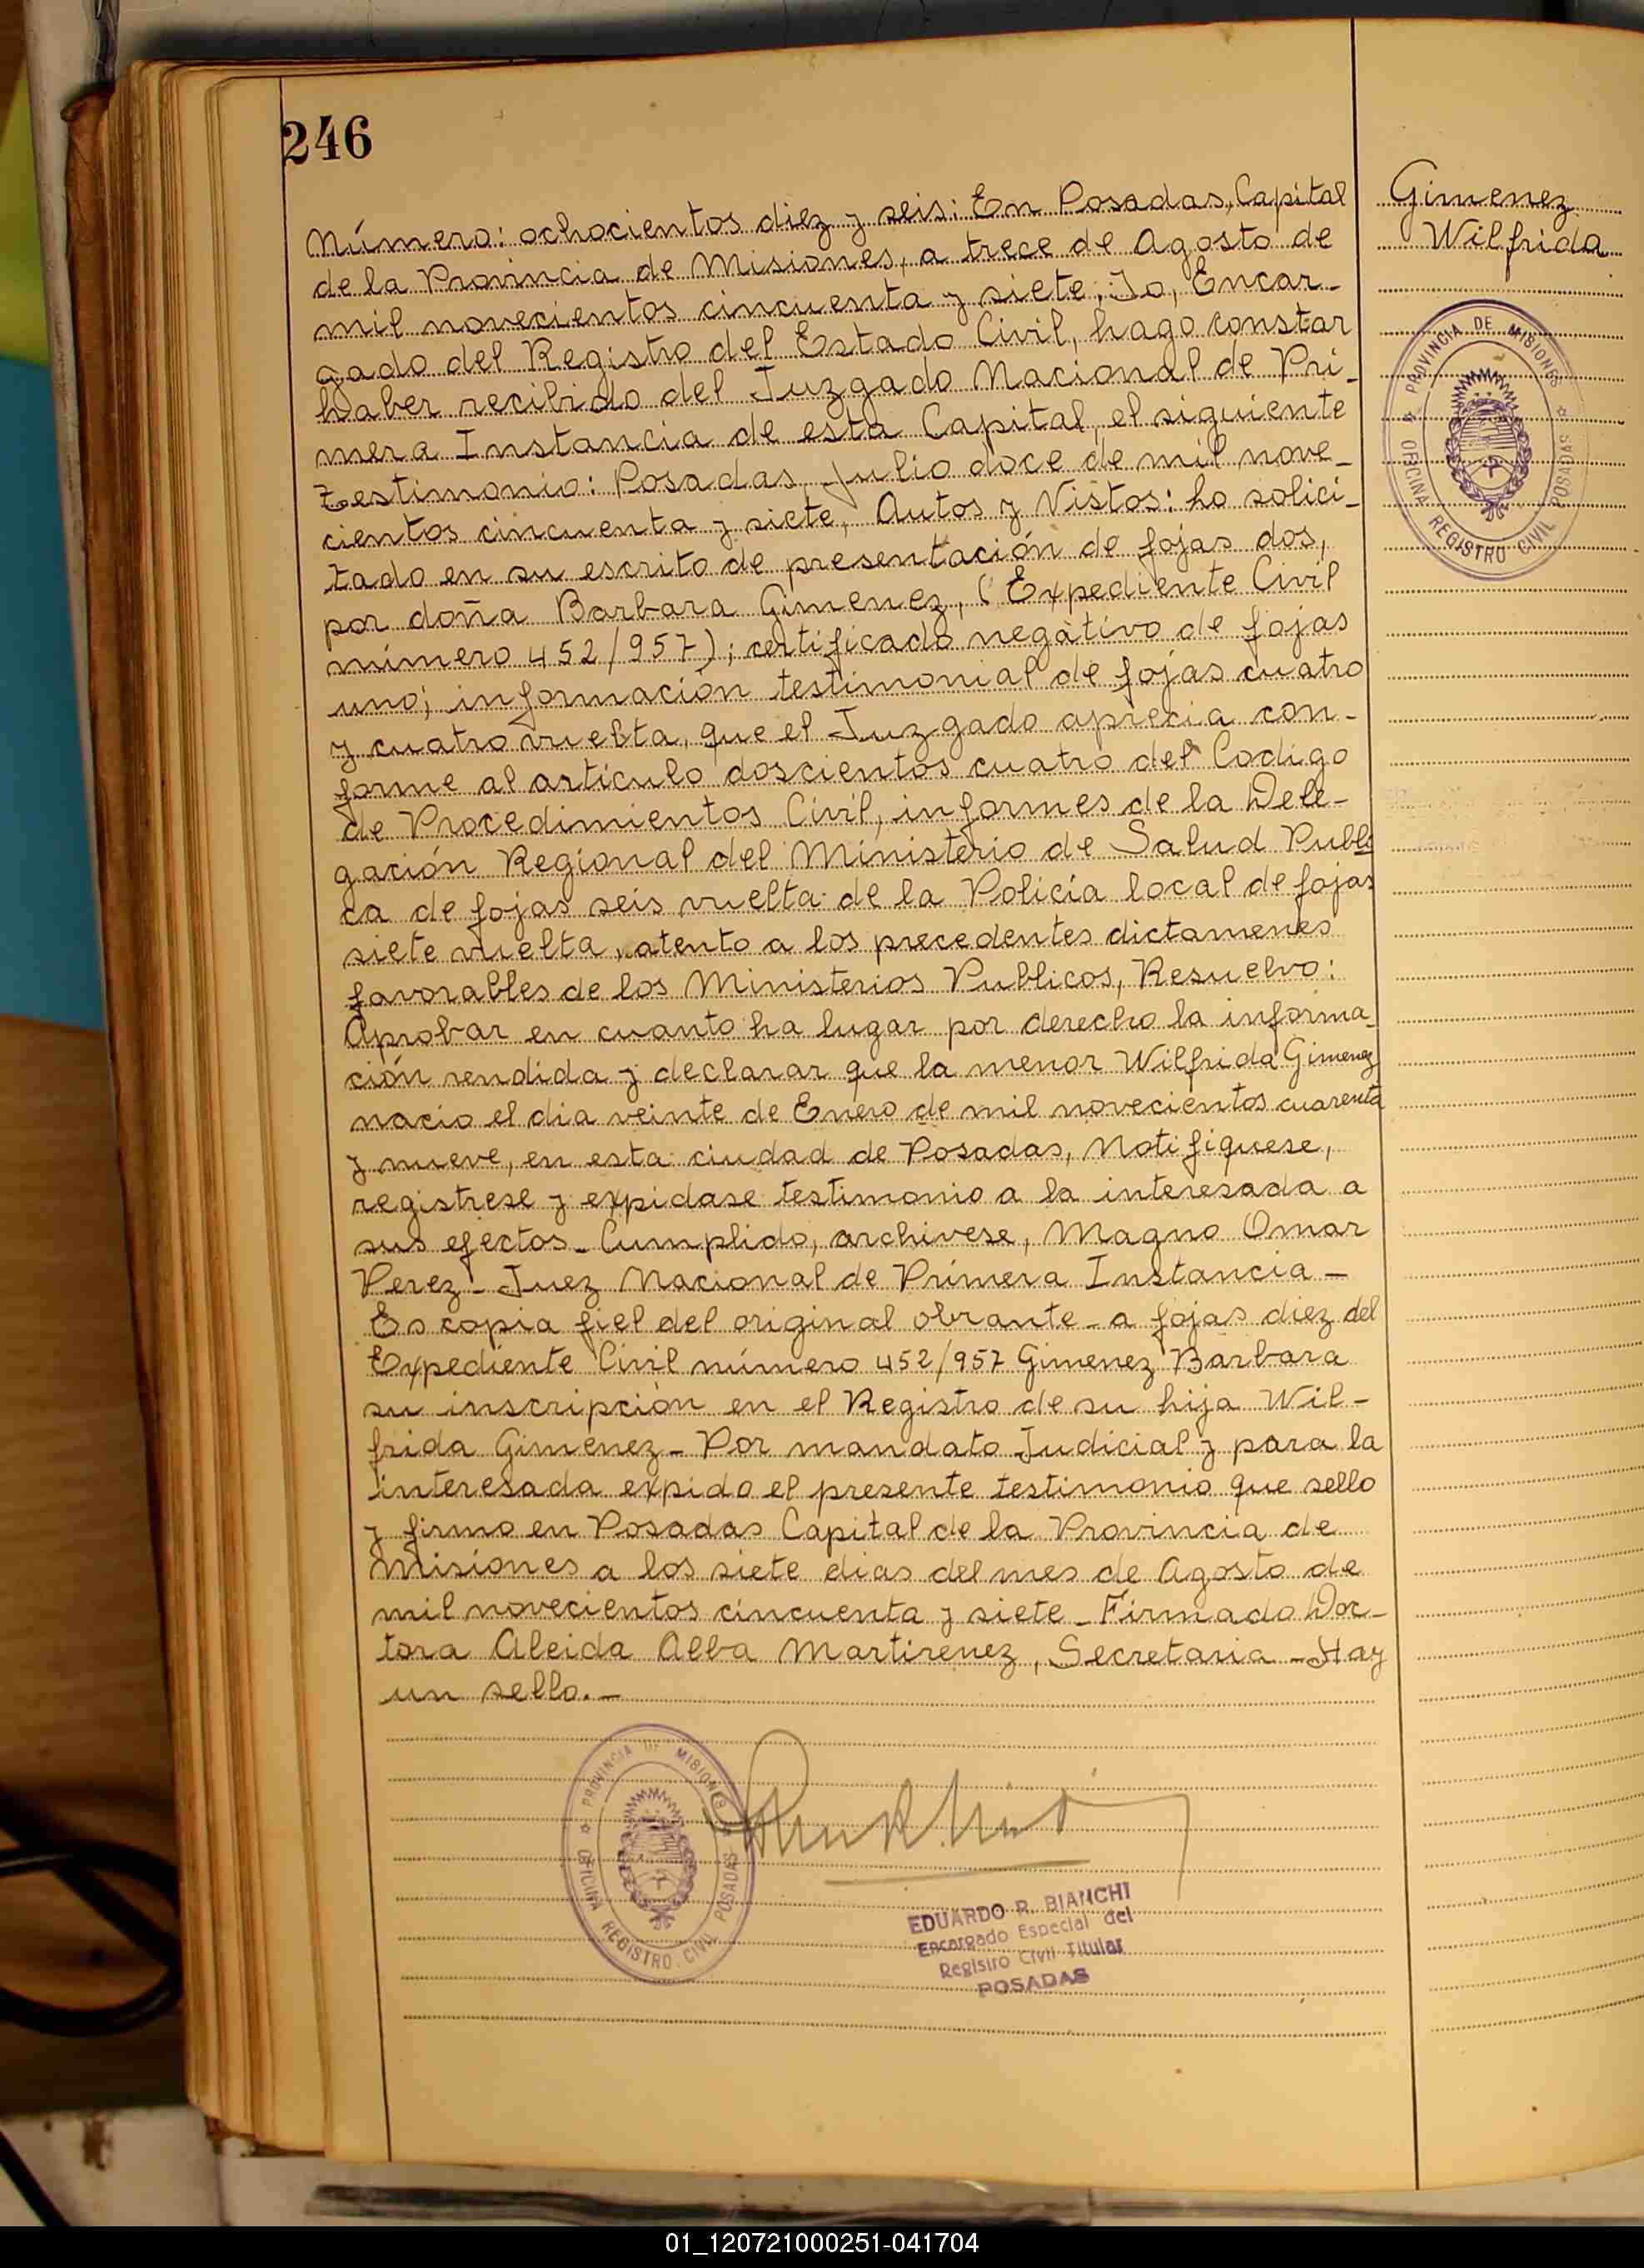 246
Gimenez
Wilfrida
Número: ochocientos diez y seis: En Posadas, Capital
de la Provincia de Misiones, a trece de Agosto de
mil novecientos cincuenta y siete, Yo, Encar-
gado del Registro del Estado Civil, hago constar
haber recibido del Juzgado Nacional de Pri-
mera Instancia de esta Capital, el siguiente
testimonio: Posadas, Julio doce de mil nove-
cientos cincuenta y siete, Autos y Vistos: ho solici-
tado en su escrito de presentación de fojas dos,
por doña Barbara Gimenez, (Expediente Civil
número 452/957); certificado negativo de fojas
uno; información testimonial de fojas cuatro
y cuatro vuelta, que el Juzgado aprecia con-
forme al artículo doscientos cuatro del Codigo
de Procedimientos Civil, informes de la Dele-
gación Regional del Ministerio de Salud Publi
ca de fojas seis vuelta de la Policía local de fojas
siete vuelta, atento a los precedentes dictamenes
favorables de los Ministerios Publicos, Resuelvo:
Aprobar en cuanto ha lugar por derecho la informa-
ción rendida y declarar que la menor Wilfrida Gimenez
nacio el dia veinte de Enero de mil novecientos cuarenta
y nueve, en esta ciudad de Posadas, Notifiquese,
registrese y expidase testimonio a la interesada a
sus efectos - Cumplido, archivese, Magno Omar
Perez - Juez Nacional de Primera Instancia -
Es copia fiel del original obrante - a fojas diez del
Expediente Civil número 452/957 Gimenez Barbara
su inscripción en el Registro de su hija Wil-
frida Gimenez - Por mandato Judicial y para la
interesada expido el presente testimonio que sello
y firmo en Posadas Capital de la Provincia de
Misiones a los siete dias del mes de Agosto de
mil novecientos cincuenta y siete - Firmado Doc-
tora Aleida Alba Martirenez, Secretaria - Hay
un sello. -
PROVINCIA DE MISIONES
OFICINA REGISTRO CIVIL POSADAS
PROVINCIA DE MISIONES
OFICINA REGISTRO CIVIL POSADAS
EDUARDO R. BIANCHI
Encargado Especial del
Registro Civil Titular
POSADAS
01_120721000251-041704